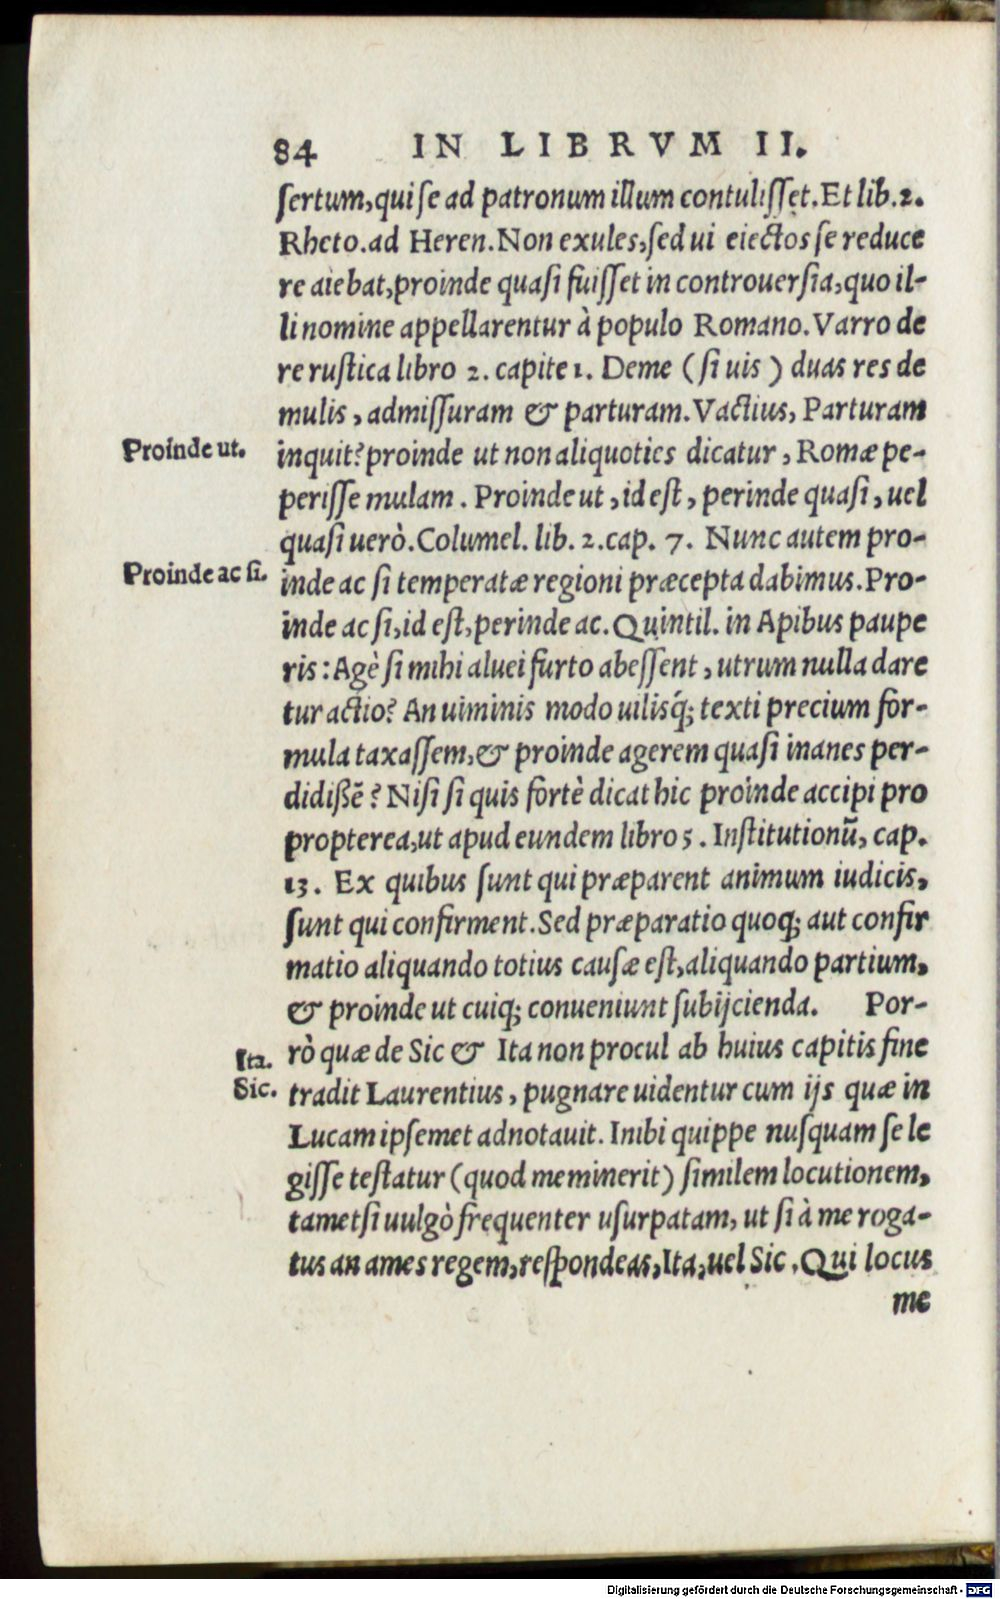 84 IN LIBRVM II.
sertum, qui se ad patronum illum contulisset. Et lib. 2.
Rheto. ad Heren. Non exules, sed ui eiectos se reduce
re aiebat, proinde quasi fuisset in controuersia, quo il-
li nomine appellarentur à populo Romano. Varro de
re rustica libro 2. capite 1. Deme (si uis) duas res de
mulis, admissuram & parturam. Vactius, Parturam
Proinde ut. inquit? proinde ut non aliquoties dicatur, Romæ pe-
perisse mulam. Proinde ut, id est, perinde quasi, uel
quasi uerò. Columel. lib. 2. cap. 7. Nunc autem pro-
Proinde ac si. inde ac si temperatæ regioni præcepta dabimus. Pro-
inde ac si, id est, perinde ac. Quintil. in Apibus paupe
ris: Agè si mihi aluei furto abessent, utrum nulla dare
tur actio? An uiminis modo uilisq́; texti precium for-
mula taxassem, & proinde agerem quasi inanes per-
didißẽ? Nisi si quis fortè dicat hic proinde accipi pro
propterea, ut apud eundem libro 5. Institutionũ, cap.
13. Ex quibus sunt qui præparent animum iudicis,
sunt qui confirment. Sed præparatio quoq; aut confir
matio aliquando totius causæ est, aliquando partium,
& proinde ut cuiq; conueniunt subijcienda. Por-
Ita. rò quæ de Sic & Ita non procul ab huius capitis fine
Sic. tradit Laurentius, pugnare uidentur cum ijs quæ in
Lucam ipsemet adnotauit. Inibi quippe nusquam se le
gisse testatur (quod meminerit) similem locutionem,
tametsi uulgò frequenter usurpatam, ut si à me roga-
tus an ames regem, respondeas, Ita, uel Sic. Qui locus
me
Digitalisierung gefördert durch die Deutsche Forschungsgemeinschaft - DFG